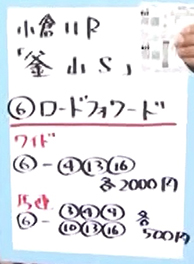 小倉11R
「釜山S」
⑥ロードフォワード
ワイド
⑥-④⑬⑯
各2000円
馬連
⑥-③④⑨
⑩⑬⑯
各500円